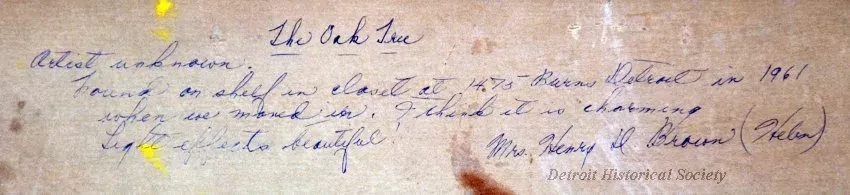 The Oak Tree
Artist unknown.
Found on shelf in closet at 1475 Burns Detroit in 1961
when we moved in. I think it is charming
Light effects beautiful!
Mrs. Henry D Brown (Helen)
Detroit Historical Society